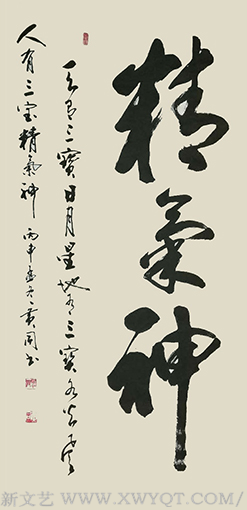 精氣神
天有三寶日月星地有三寶水火風
人有三宝精氣神 丙申
新文艺 WWW.XWYQT.COM